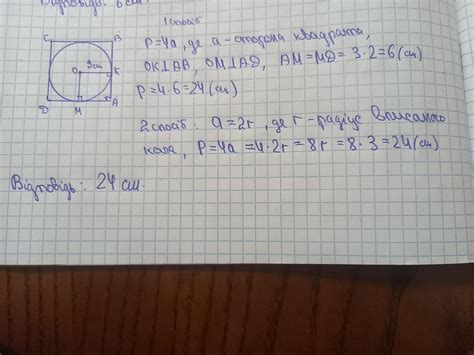 Відповідь: 6 см
1 спосіб
P=4a, де a - сторона квадрата,
OK⊥AB, OM⊥AD, AM=MD=3·2=6(см)
P=4·6=24(см)
2 спосіб: a=2r, де r - радіус вписаного
кола, P=4a=4·2r=8r=8·3=24(см)
Відповідь: 24 см.
C B
O 3см K
D M A